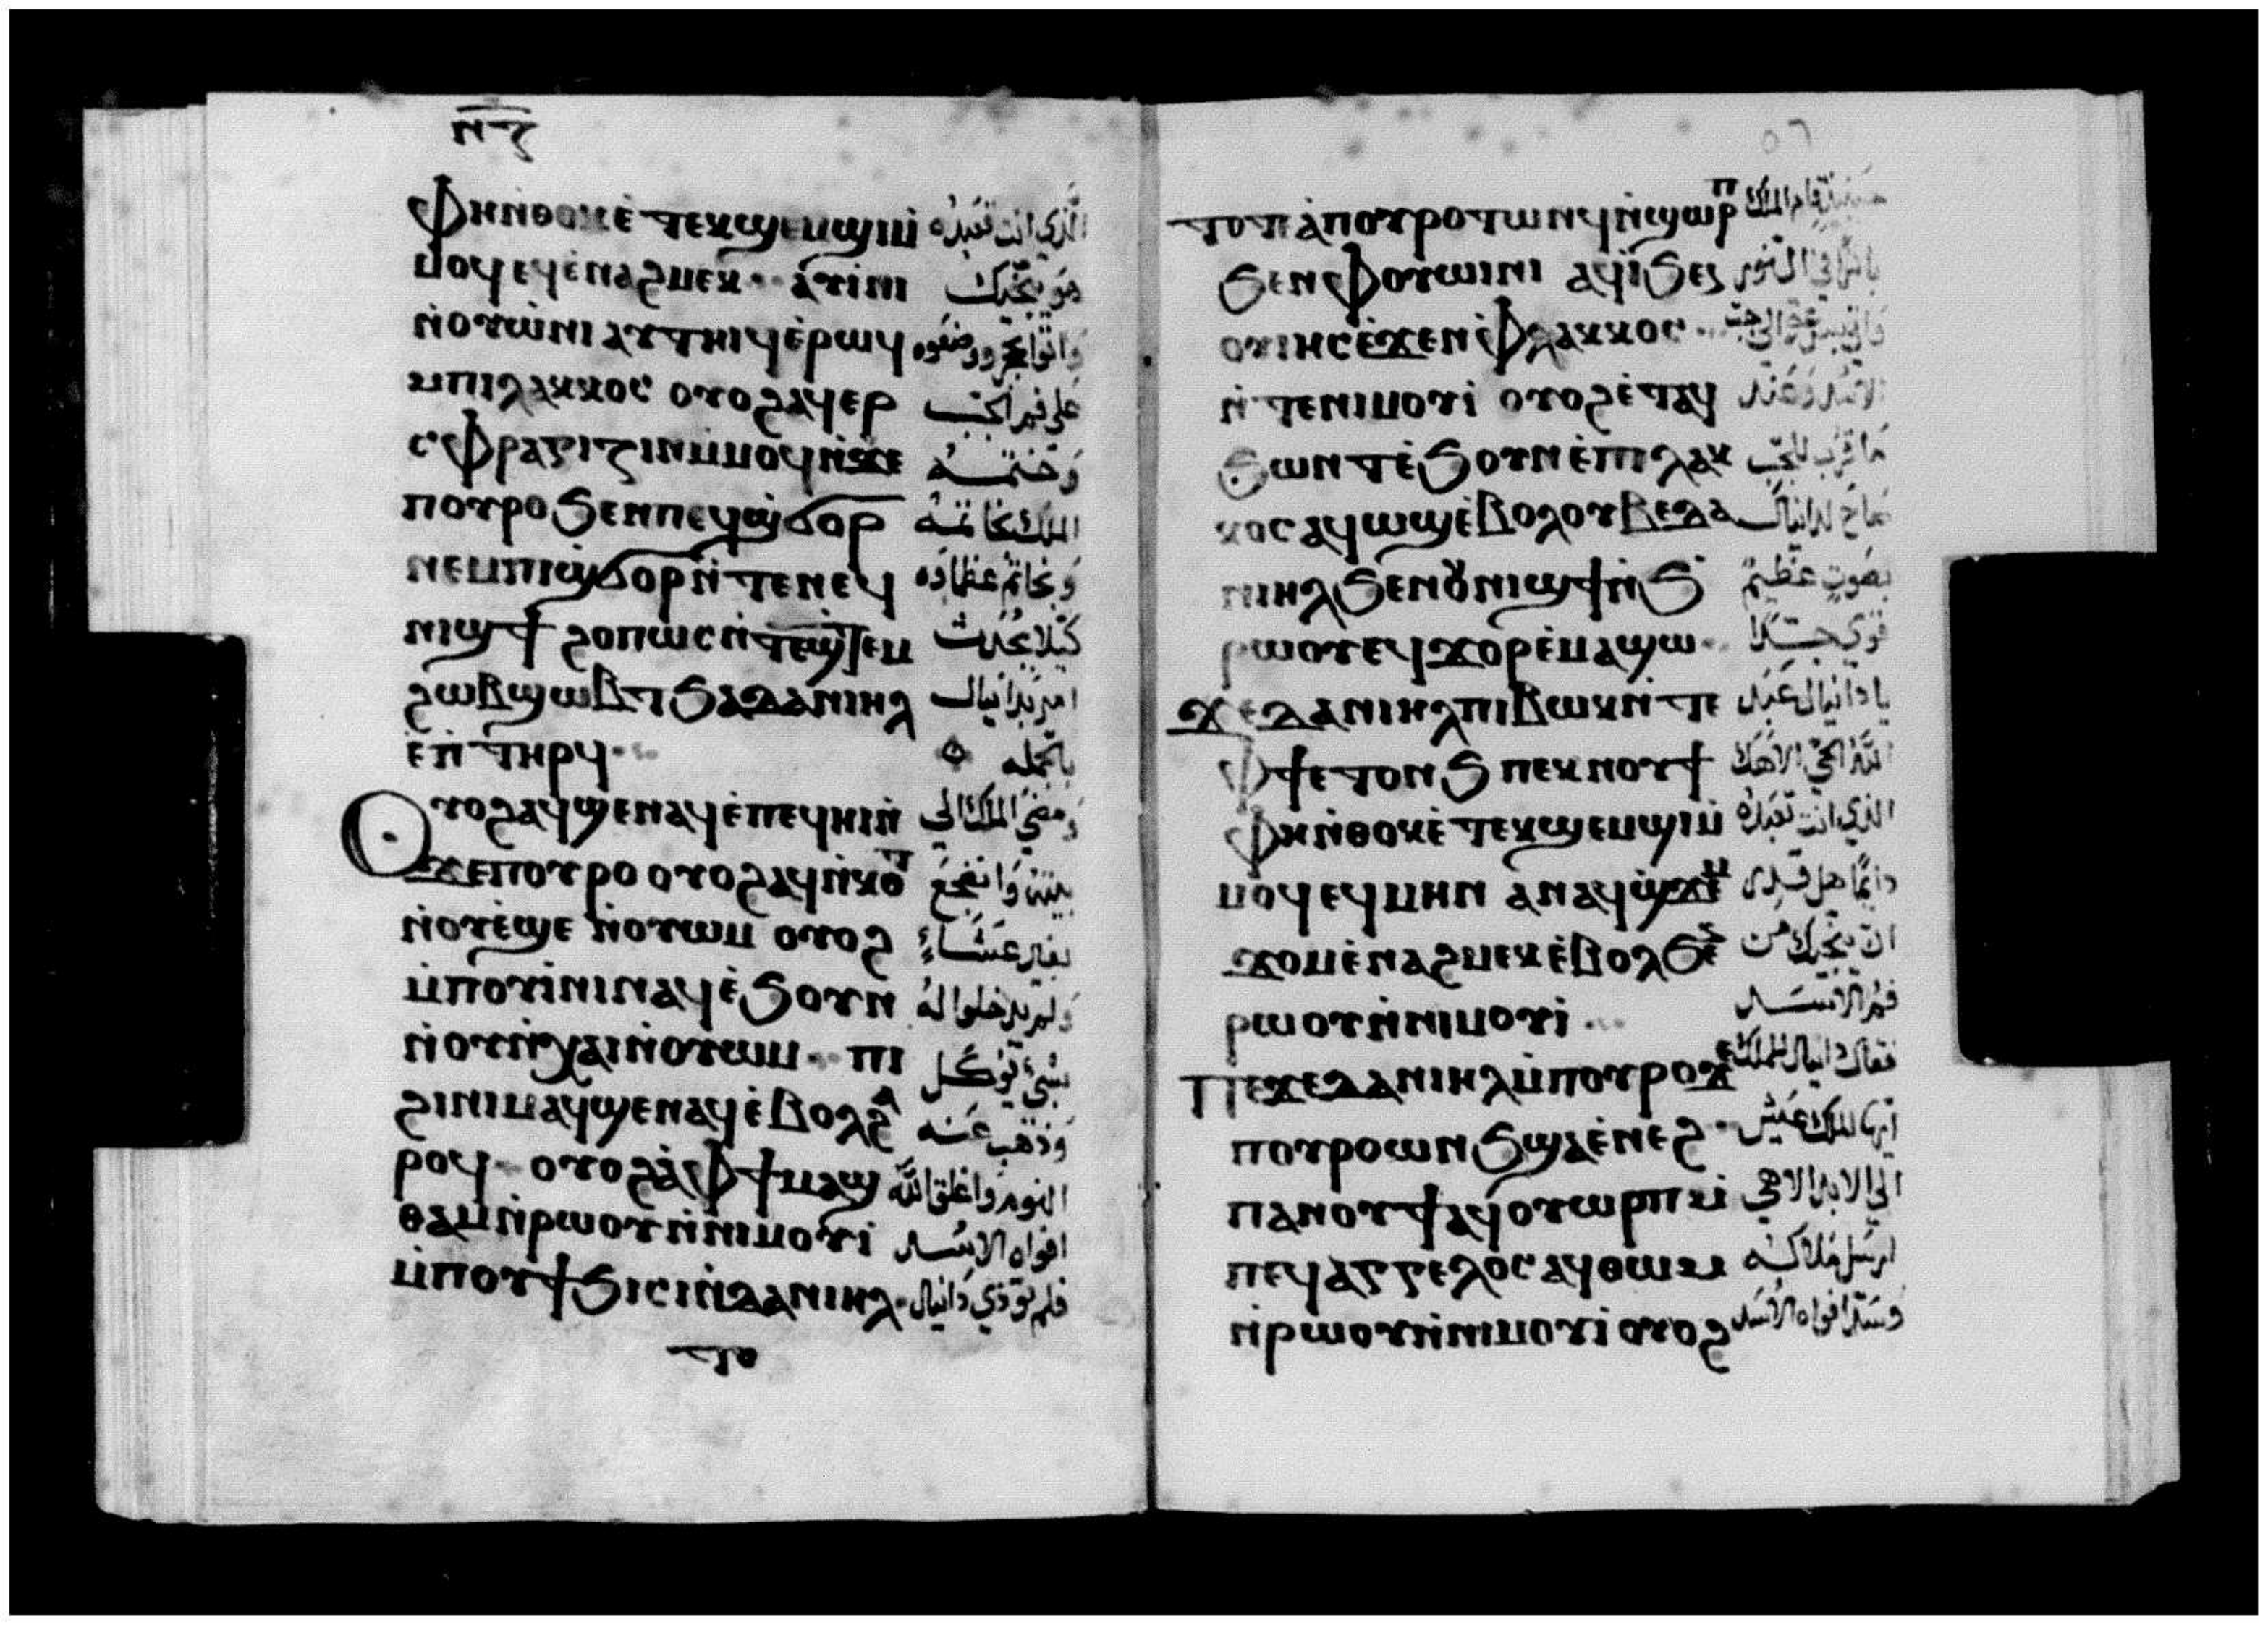 ⲛⲍ
ⲫⲏⲛ̀ⲑⲟⲕⲉ̀ⲧⲉⲕϣⲉⲙϣⲓⲙ̀ الَّذي انت تعبده
ⲙⲟϥⲉϥⲉ̀ⲛⲁϩⲙⲉⲕ ⲁⲩⲓⲛⲓ هو ينجيك
ⲛ̀ⲟⲩⲱ̀ⲛⲓ ⲁⲩⲧⲏⲓϥⲉ̀ⲣⲱϥ واتوا بحجر ووضعوه
ⲙⲡⲓⲗⲁⲕⲕⲟⲥ ⲟⲩⲟϩⲁϥⲉⲣ على فم الجب
ⲥⲫⲣⲁⲅⲓⲍⲓⲛⲙ̀ⲙⲟϥⲛ̀ϫⲉ وختمه
ⲡⲟⲩⲣⲟϧⲉⲛⲡⲉϥϣ̀ϭⲟⲣ الملك بخاتمه
ⲛⲉⲙⲡⲓϣϭⲟⲣⲛ̀ⲧⲉⲛⲉϥ وبخاتم عظماوه
ⲛⲓϣϯ ϩⲟⲡⲱⲥⲛ̀ⲧⲉϣⲧⲉⲙ كيلا يحدث
ϩⲱⲃϣⲱⲃⲧϧⲁⲇⲁⲛⲓⲏⲗ امر بدانيال
ⲉ̀ⲡ̀ⲧⲏⲣϥ بالجمله
ⲟⲩⲟϩⲁϥϣⲉⲛⲁϥⲉ̀ⲡⲉϥⲏⲓⲛ̀ ومضى الملك الى
ϫⲉⲡⲟⲩⲣⲟ ⲟⲩⲟϩⲁϥⲛ̀ⲕⲟⲧ بيته وانضجع
ⲛ̀ⲟⲩⲉ̀ϣⲉ ⲛ̀ⲟⲩⲱⲙ ⲟⲩⲟϩ بغير عشاء
ⲙ̀ⲡⲟⲩⲓ̀ⲛⲓⲛⲁϥⲉ̀ϧⲟⲩⲛ ولم يدخلوا له
ⲛ̀ⲟⲩⲛ̀ⲭⲁⲓⲛ̀ⲟⲩⲱⲙ ⲡⲓ بشي يوكل
ϩⲓⲛⲓⲙⲁϥϣⲉⲛⲁϥⲉ̀ⲃⲟⲗϩⲁ وذهب عنه
ⲣⲟϥ ⲟⲩⲟϩⲁ̀ⲫϯⲙⲁϣ النوم واغلق الله
ⲑⲁⲙⲛ̀ⲣⲱⲟⲩⲛ̀ⲛⲓⲙⲟⲩⲓ افواه الاسد
ⲙ̀ⲡⲟⲩϯϧⲓⲥⲓⲛ̀ⲇⲁⲛⲓⲏⲗ فلم توذي دانيال
ⲧⲟ
ⲧⲟⲧⲉⲁ̀ⲡⲟⲩⲣⲟⲧⲱⲛϥⲛ̀ϣⲱⲣⲡ قام الملك
ϧⲉⲛⲫⲟⲩⲱⲓⲛⲓ ⲁϥⲓ̀ϧⲉⲛ باكرا في النور
ⲟⲩⲓⲏⲥⲉ̀ϫⲉⲛⲫⲗⲁⲕⲕⲟⲥ
ⲛ̀ⲧⲉⲛⲓⲙⲟⲩⲓ ⲟⲩⲟϩⲉ̀ⲧⲁϥ الاسد وعند
ϧⲱⲛⲧⲉ̀ϧⲟⲩⲛⲉ̀ⲡⲓⲗⲁⲕ ما قرب للجب
ⲕⲟⲥⲁϥⲱϣⲉ̀ⲃⲟⲗⲟⲩⲃⲉⲇⲁ صاح لدانيال
ⲛⲓⲏⲗϧⲉⲛⲟⲩⲛⲓϣϯⲛ̀ϧ بصوت عظيم
ⲣⲱⲟⲩⲉϥϫⲟⲣⲉ̀ⲙⲁϣⲱ قوي جدًا
ϫⲉⲇⲁⲛⲓⲏⲗⲡⲓⲃⲱⲕⲛ̀ⲧⲉ يا دانيال عبد
ⲫϯⲉⲧⲟⲛϧ ⲡⲉⲕⲛⲟⲩϯ الله الحي الاهك
ⲫⲏⲛ̀ⲑⲟⲕⲉ̀ⲧⲉⲕϣⲉⲙϣⲓⲙ̀ الذي انت تعبده
ⲙⲟϥⲉϥⲙⲏⲛ ⲁⲛⲁϥϣ̀ϫⲉⲙ دايمًا هل قدر
ϫⲟⲙⲉ̀ⲛⲁϩⲙⲉⲕⲉ̀ⲃⲟⲗϧⲉⲛ ان ينجيك من
ⲣⲱⲟⲩⲛ̀ⲛⲓⲙⲟⲩⲓ فم الاسد
ⲡⲉϫⲉⲇⲁⲛⲓⲏⲗⲙ̀ⲡⲟⲩⲣⲟϫⲉ فقال دانيال للملك
ⲡⲟⲩⲣⲟⲱⲛϧϣⲁⲉ̀ⲛⲉϩ ايها الملك عيش
ⲡⲁⲛⲟⲩϯⲁϥⲟⲩⲱⲣⲡⲙ̀ الى الابد الاهي
ⲡⲉϥⲁⲅⲅⲉⲗⲟⲥⲁϥⲑⲱⲙ ارسل ملاكه
ⲛ̀ⲣⲱⲟⲩⲛ̀ⲛⲓⲙⲟⲩⲓ ⲟⲩⲟϩ وسد افواه الاسد